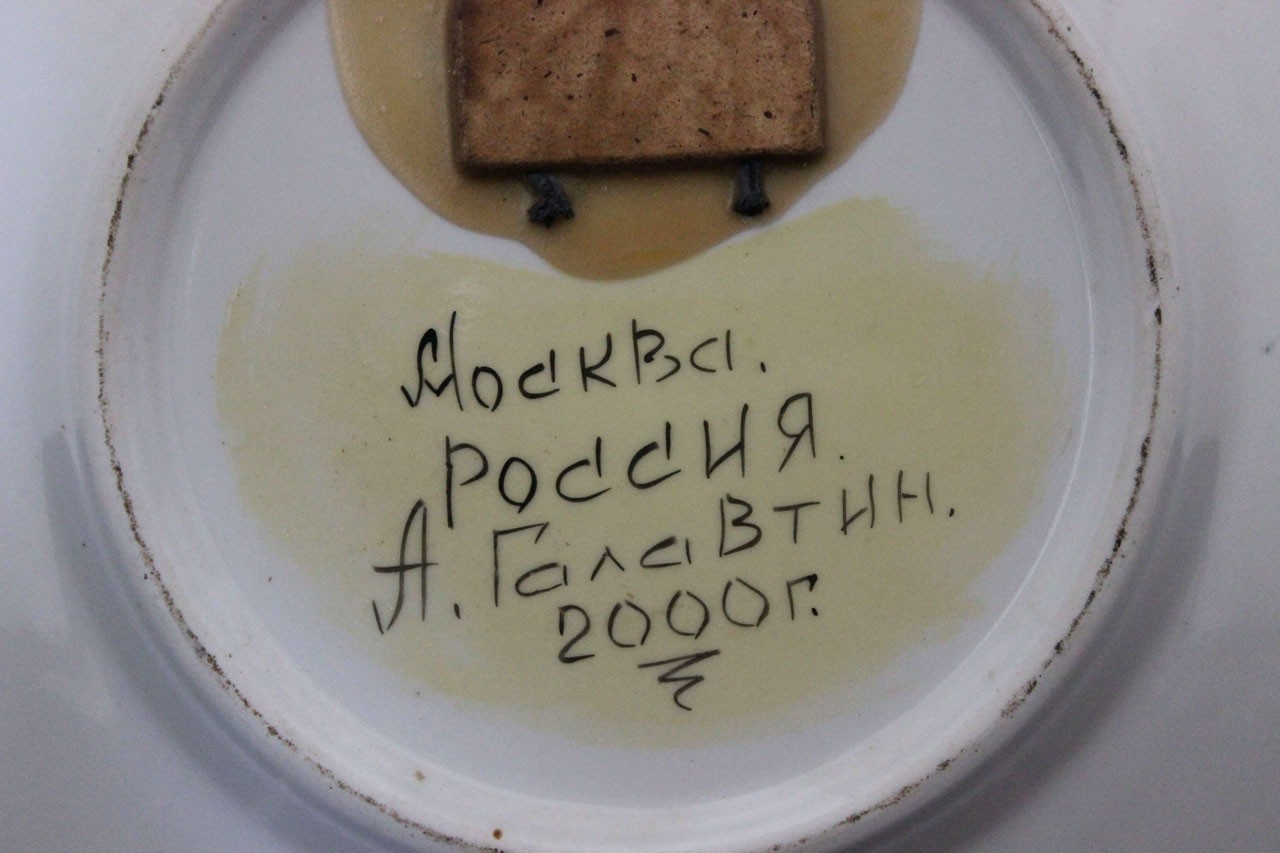 Москва.
Россия.
А. Галавтин.
2000 г.